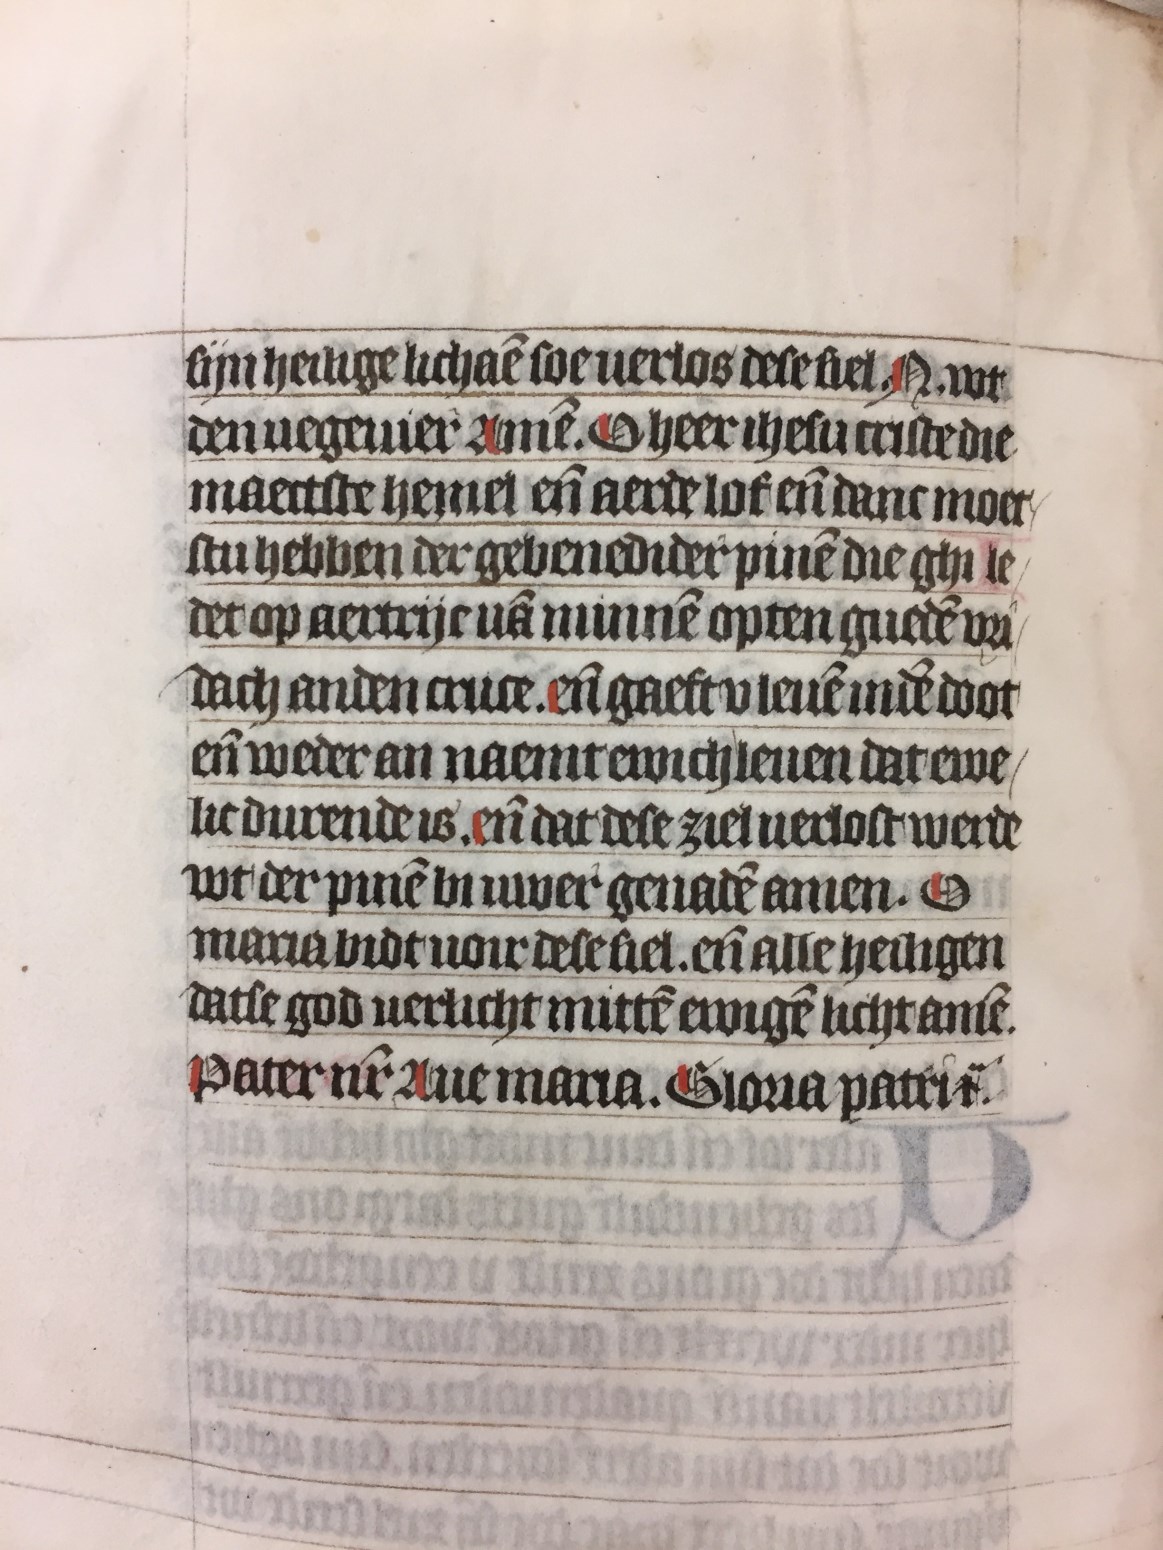 sijn heilige lichaē soe verlos dese siel. N. wt
den vegevier Amē. O heer ihesu criste die
maectste hemel eñ aerde lof eñ danc moet
stu hebben der gebenedider pinē die ghi le
det op aertrijc vā minnē opten guedē vri
dach anden cruce. eñ gaeft v levē indē doot
eñ weder an naemt ewich leven dat ewe
lic durende is. eñ dat dese ziel verlost werde
wt der pinē bi iuwer genadē amen. O
maria bidt voir dese siel. eñ alle heiligen
datse god verlicht mittē ewigē licht amē.
Pater nr̄ Ave maria. Gloria patri